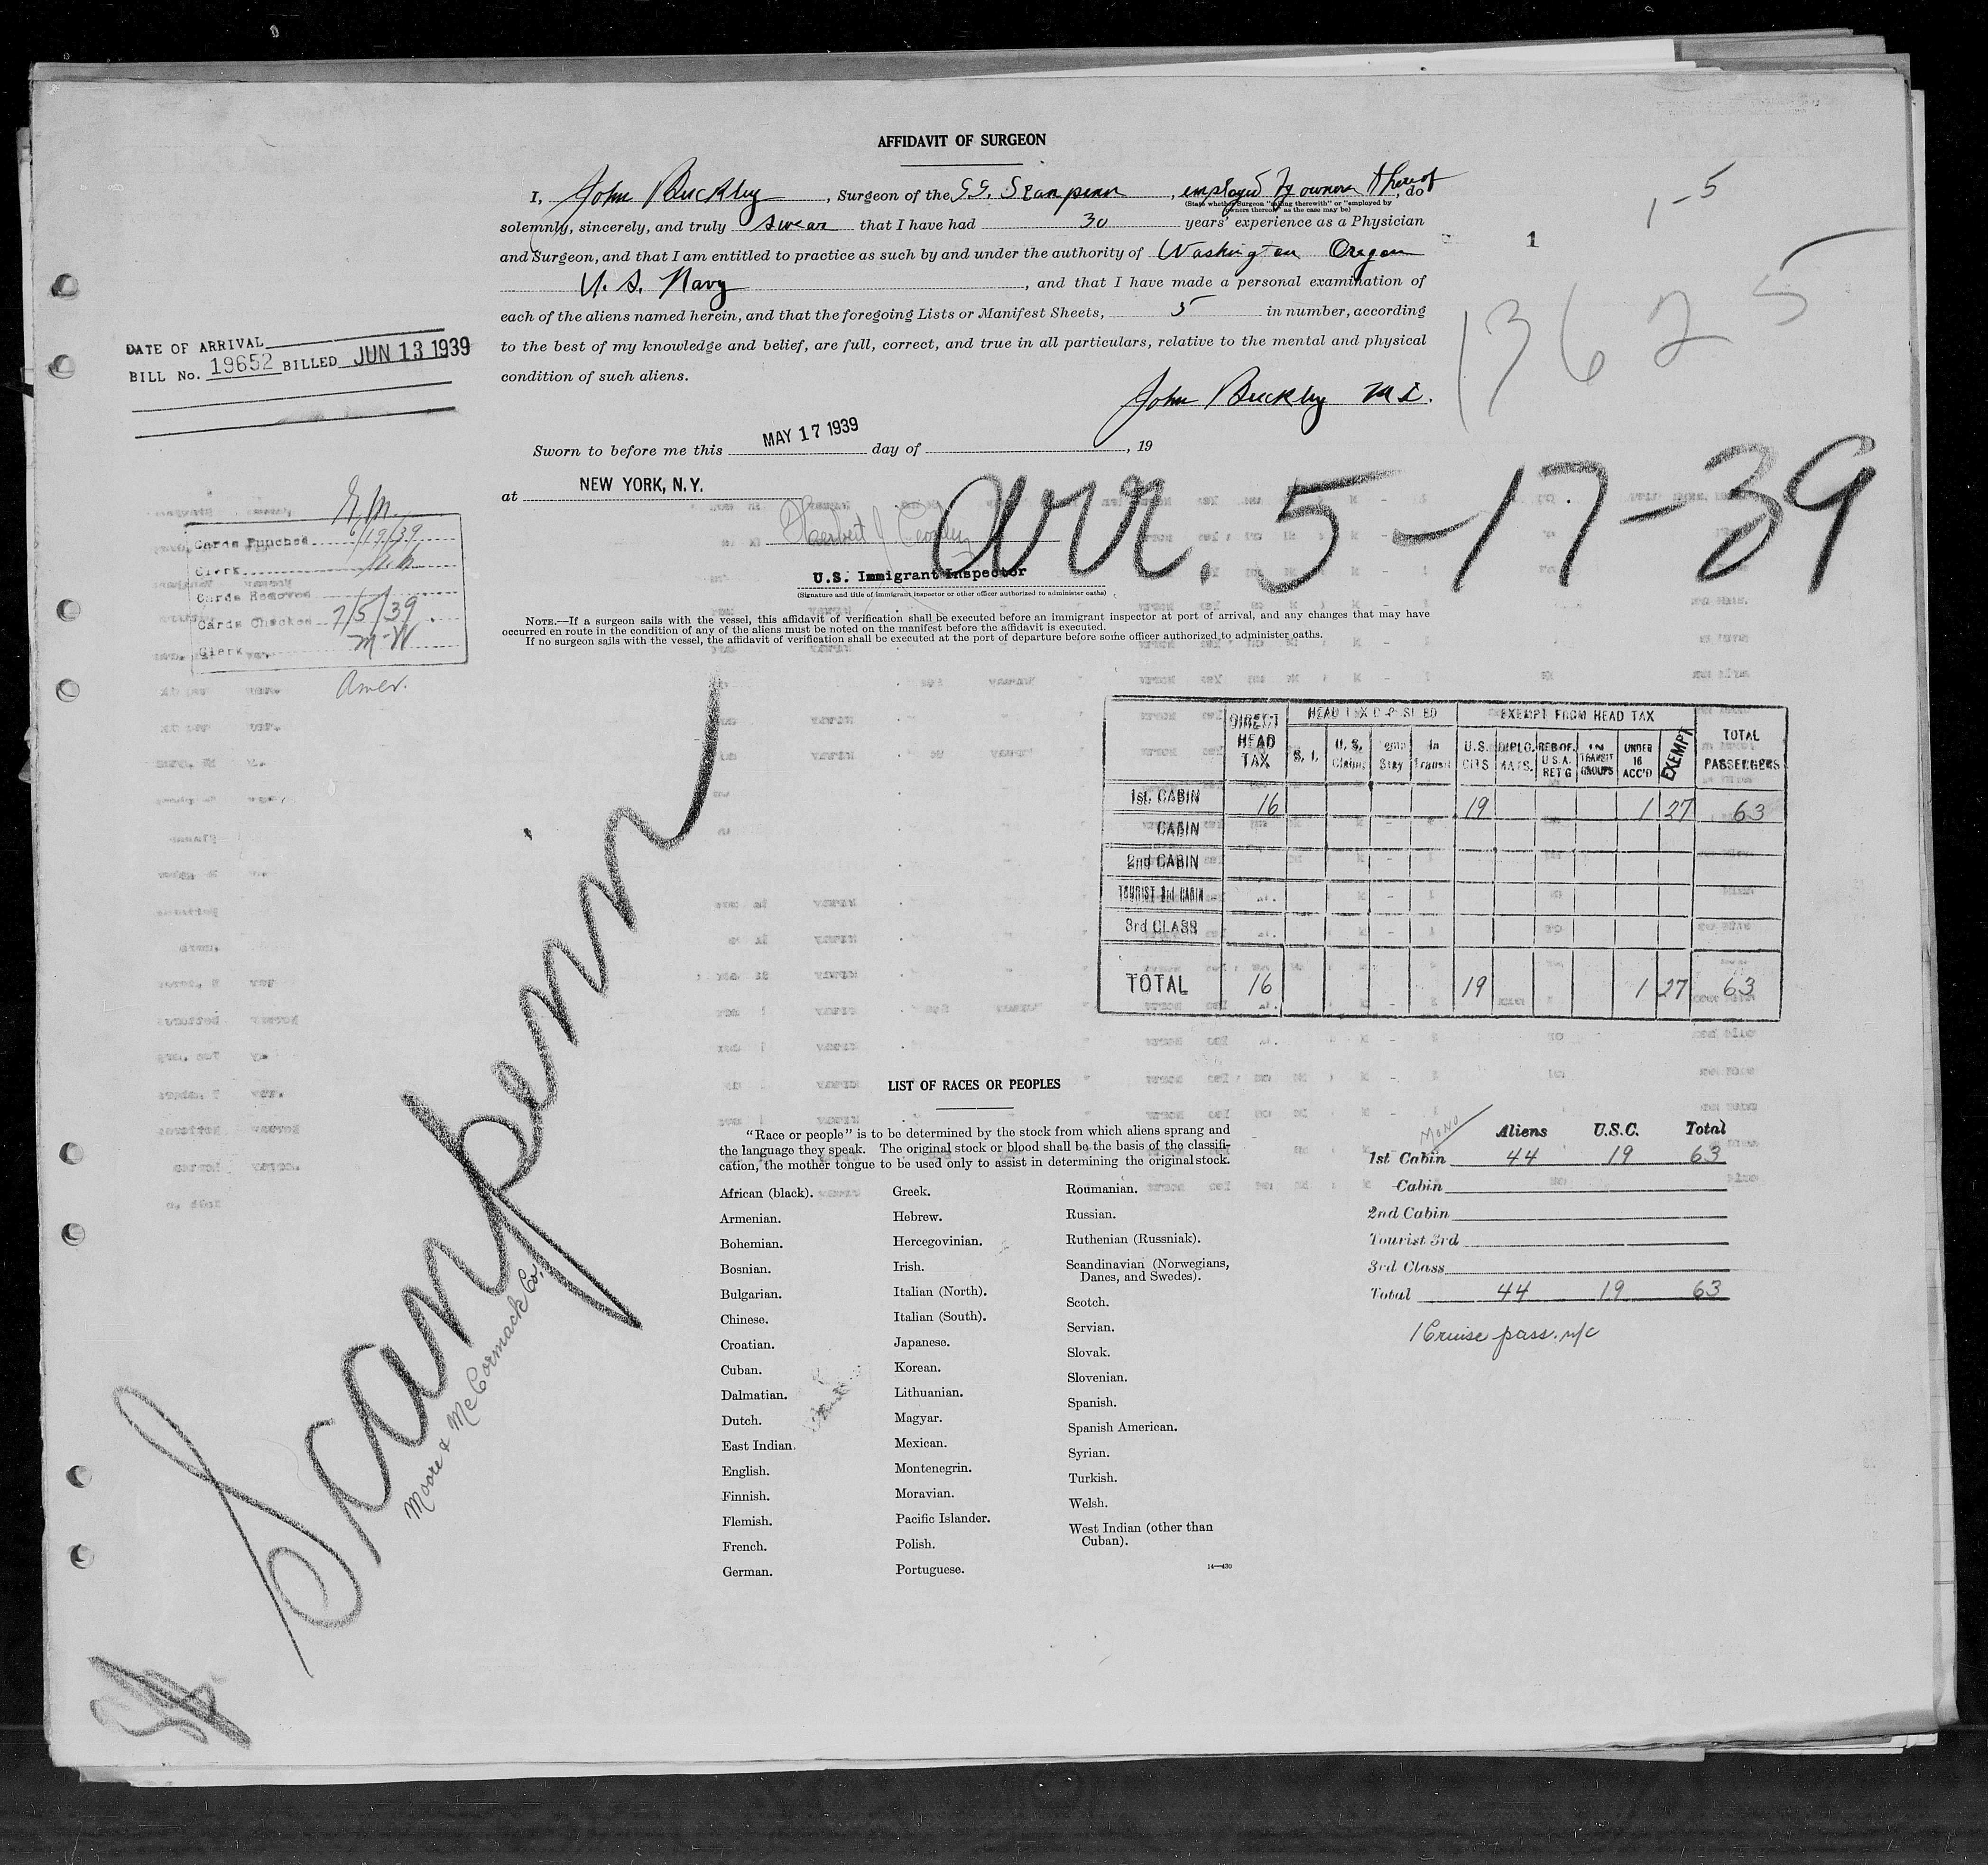 AFFIDAVIT OF SURGEON
I, John Buckley, Surgeon of the S.S. Scanpenn, employed by owners thereof, do
(State whether Surgeon "sailing therewith" or "employed by
owners thereof," as the case may be)
solemnly, sincerely, and truly swear that I have had 30 years' experience as a Physician
and Surgeon, and that I am entitled to practice as such by and under the authority of Washington Oregon
U. S. Navy, and that I have made a personal examination of
each of the aliens named herein, and that the foregoing Lists or Manifest Sheets, 5 in number, according
to the best of my knowledge and belief, are full, correct, and true in all particulars, relative to the mental and physical
condition of such aliens.
John Buckley M.D.
1-5
1
13625
DATE OF ARRIVAL
BILL No. 19652 BILLED JUN 13 1939
Sworn to before me this MAY 17 1939 day of , 19
at NEW YORK, N.Y.
arr. 5-17-39
Herbert J
U.S. Immigrant Inspector
(Signature and title of immigrant inspector or other officer authorized to administer oaths)
Cards Punched 6/19/39
Clerk
Cards Removed
Cards Checked 7/5/39
Clerk M-W
Amer.
NOTE.—If a surgeon sails with the vessel, this affidavit of verification shall be executed before an immigrant inspector at port of arrival, and any changes that may have
occurred en route in the condition of any of the aliens must be noted on the manifest before the affidavit is executed.
If no surgeon sails with the vessel, the affidavit of verification shall be executed at the port of departure before some officer authorized to administer oaths.
Scanpenn
Moore & McCormack Co.
DIRECT HEAD TAX
HEAD TAX DEPOSITED
EXEMPT FROM HEAD TAX
TOTAL PASSENGERS
S. I. U. S. Claims Temp Stay In Transit U.S. CITS DIPLO. MATS. RES OF. U.S.A. RET'G IN TRANSIT GROUPS UNDER 16 ACC'D EXEMPT
1st. CABIN 16 19 1 27 63
CABIN
2nd CABIN
TOURIST 3rd CABIN
3rd CLASS
TOTAL 16 19 1 27 63
LIST OF RACES OR PEOPLES
"Race or people" is to be determined by the stock from which aliens sprang and
the language they speak. The original stock or blood shall be the basis of the classifi-
cation, the mother tongue to be used only to assist in determining the original stock.
African (black).
Armenian.
Bohemian.
Bosnian.
Bulgarian.
Chinese.
Croatian.
Cuban.
Dalmatian.
Dutch.
East Indian.
English.
Finnish.
Flemish.
French.
German.
Greek.
Hebrew.
Hercegovinian.
Irish.
Italian (North).
Italian (South).
Japanese.
Korean.
Lithuanian.
Magyar.
Mexican.
Montenegrin.
Moravian.
Pacific Islander.
Polish.
Portuguese.
Roumanian.
Russian.
Ruthenian (Russniak).
Scandinavian (Norwegians,
Danes, and Swedes).
Scotch.
Servian.
Slovak.
Slovenian.
Spanish.
Spanish American.
Syrian.
Turkish.
Welsh.
West Indian (other than
Cuban).
14—430
Aliens U.S.C. Total
1st Cabin 44 19 63
Cabin
2nd Cabin
Tourist 3rd
3rd Class
Total 44 19 63
1 Cruise pass. n/c